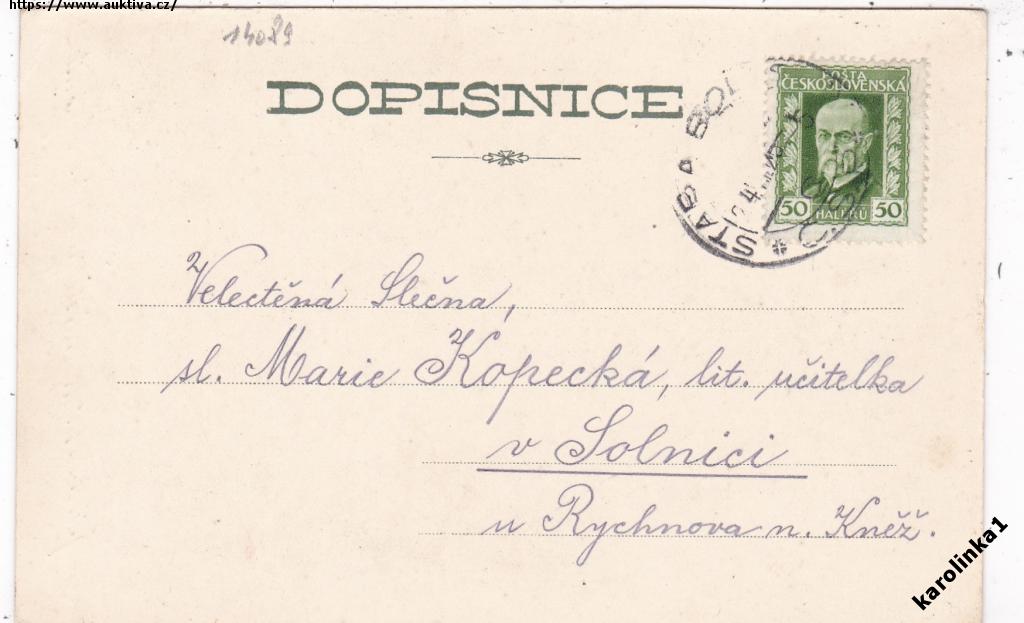 https://www.auktiva.cz/
14089
DOPISNICE
POŠTA
ČESKOSLOVENSKÁ
50 HALÉŘŮ 50
STARÁ BOL
Velectěná Slečna,
sl. Marie Kopecká, lit. učitelka
v Solnici
u Rychnova n. Kněž.
karolinka1